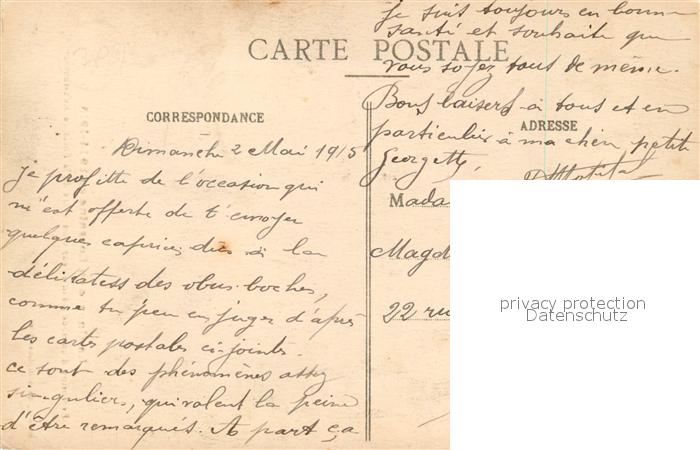 CARTE POSTALE
CORRESPONDANCE
Dimanche 2 Mai 1915
je profitte de l'occasion qui
m'est offerte de t'envoyer
quelques caprices dus à la
délikatess des obus boches,
comme tu peu en juger d'après
les cartes postales ci-jointes.
ce sont des phénomènes assez
singuliers, qui valent la peine
d'être remarqués. A part ça
je suis toujours en bonne
santé et souhaite que
vous soyez tous de même.
Bons baisers à tous et en
particulier à ma chère petite
Georgette.
ADRESSE
Mada
Magd
22 ru
privacy protection
Datenschutz